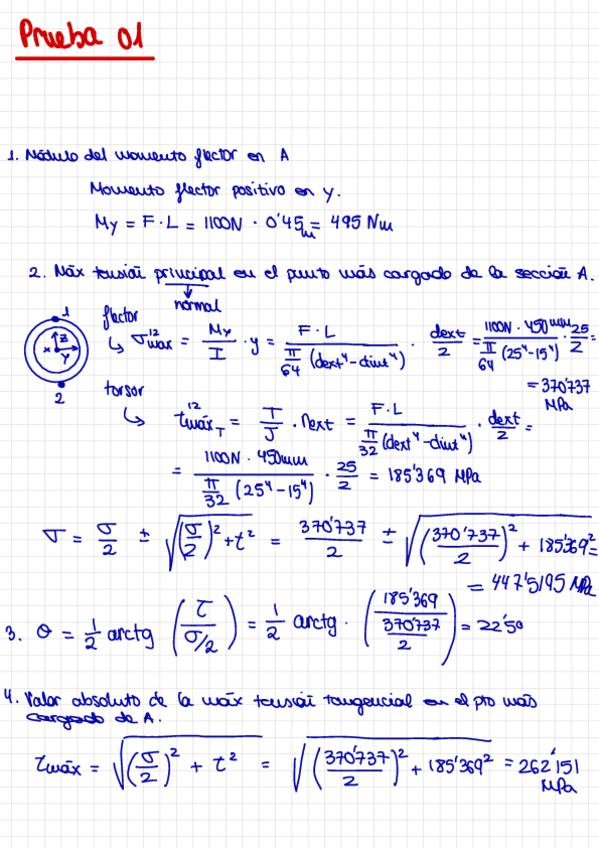 Prueba 01
1. Módulo del momento flector en A
Momento flector positivo en y.
My = F · L = 1100N · 0'45m = 495 Nm
2. Máx tensión principal en el punto más cargado de la sección A.
normal
1
x z y
2
flector
↳ σmax¹² = My/I · y = F · L / (π/64 (dext⁴ - dint⁴)) · dext/2 = 1100N · 450mm / (π/64 (25⁴ - 15⁴)) · 25/2 =
= 370'737 MPa
torsor
↳ τmáxT¹² = T/J · rext = F · L / (π/32 (dext⁴ - dint⁴)) · dext/2 =
= 1100N · 450mm / (π/32 (25⁴ - 15⁴)) · 25/2 = 185'369 MPa
σ = σ/2 ± √((σ/2)² + τ²) = 370'737/2 ± √((370'737/2)² + 185'369²) =
= 447'5195 MPa
3. θ = 1/2 arctg (τ / (σ/2)) = 1/2 arctg · (185'369 / (370'737/2)) = 22'5º
4. Valor absoluto de la máx tensión tangencial en el pto más
cargado de A.
τmáx = √((σ/2)² + τ²) = √((370'737/2)² + 185'369²) = 262'151 MPa